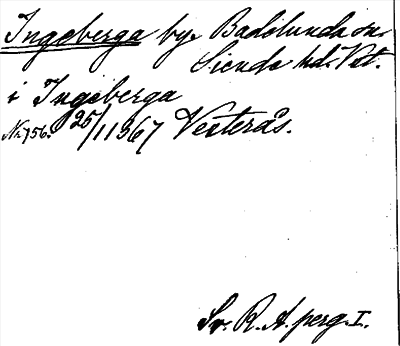 Ingeberga by, Badelunda sn.
Siende hd. Vst.
i Ingeberga
Nr 756. 25/11 367 Vesterås.
Sv. R. A. perg. I.